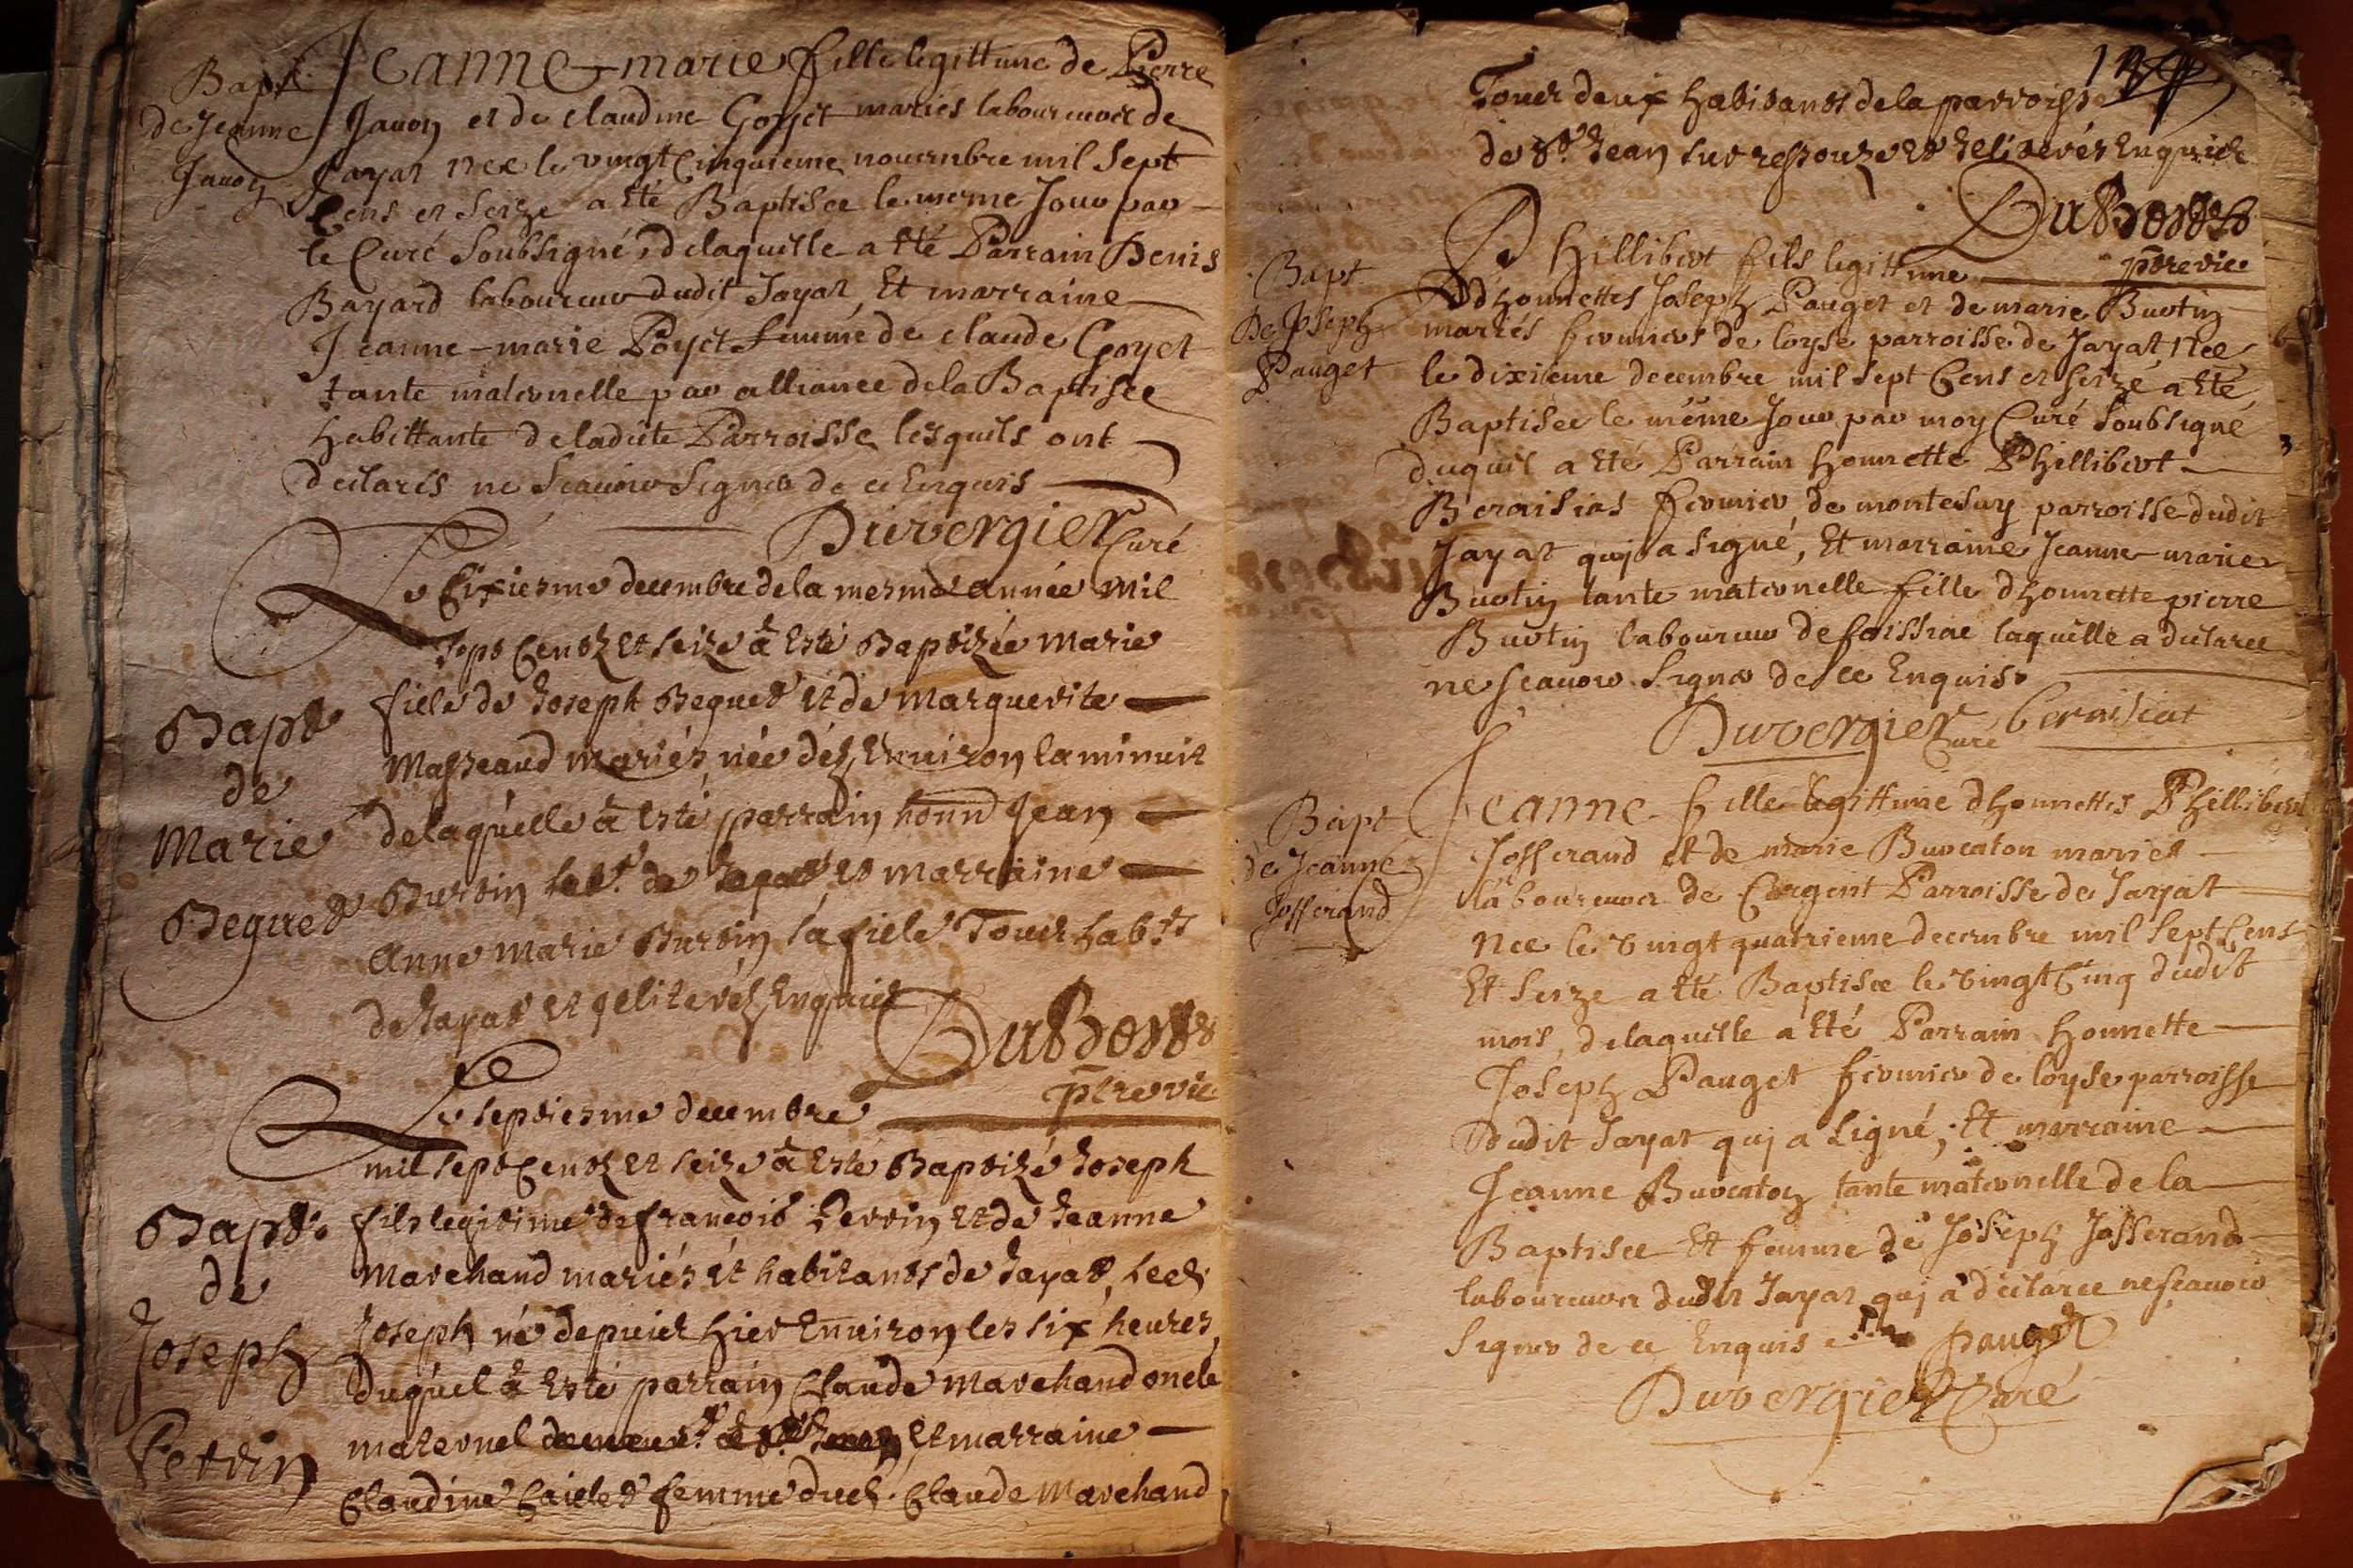 Bapt.
de Jeanne
Jauon
Jeanne-marie fille legittime de Pierre
Jauon et de claudine Goyet mariés laboureurs de
Jayat née le vingt cinquieme nouembre mil sept
cens et seize a été Baptisée le meme Jour par
le Curé soubsigné, delaquelle a été Parrain Denis
Bayard laboureur dudit Jayat, Et marraine
Jeanne-marie Poyet femme de claude Goyet
tante maternelle par alliance dela Baptisée
habittante deladite Parroisse lesquels ont
déclarés ne sçauoir signer de ce Enquis
Duvergier Curé
Le sixiesme decembre dela mesme année mil
sept centz et seize à esté Baptizée Marie
fille de Joseph Beguet et de Marguerite
Masseaud mariés, née déz Enuiron la minuit
delaquelle à esté parrain honn Jean
Burtin lab.r de Jayat et marraine
Anne Marie Burtin sa fille Touts hab.ts
de Jayat et jllitéréz Enquiets
DuBost
ptre vic
Bapt
de
Marie
Beguet
Le septiesme decembre
mil sept centz et seize à esté Baptizé Joseph
fils legitime de françois Perrin et de Jeanne
Marchand mariés et habitants de Jayat, led.
Joseph né depuis hier Enuiron les six heures,
duquel à esté parrain Claude Marchand oncle
maternel et marraine
Claudine femme dud. Claude Marchand
Bapt.
de
Joseph
Perrin
Touts deux habitants de la parroisse
de S.t Jean sur ressouze et jllitérés Enquiets
DuBost
ptre vic
Bapt
De Joseph
Pauget
Phillibert fils legittime
d'honnettes Joseph Pauget et de marie Buttin
mariés fermiers de loyse parroisse de Jayat née
le dixieme decembre mil sept cens et seize a été
Baptisée le même Jour par moy Curé soubsigné
duquel a été Parrain honnette Phillibert
Beraisias fermier de montesuy parroisse dudit
Jayat quj a signé, Et marraine Jeanne-marie
Buttin tante maternelle fille d'honnette pierre
Buttin laboureur de foissiac laquelle a déclarée
ne scauoir signer de ce Enquise
Duvergier Curé beraisiat
Bapt
de Jeanne
Josserand
Jeanne fille legittime d'honnettes Phillibert
Josserand et de marie Buvcaton mariés
laboureurs de Cergent Parroisse de Jayat
Née le vingt quatrieme decembre mil sept cens
Et seize a été Baptisée le vingt Cinq dudit
mois, delaquelle a été Parrain honnette
Joseph Pauget fermier de loyse parroisse
dudit Jayat quj a signé, Et marraine
Jeanne Buvcaton tante maternelle de la
Baptisée Et femme de Joseph Josserand
laboureur dudit Jayat quj à déclarée ne scauoir
signer de ce Enquise pauget
Duvergier Curé